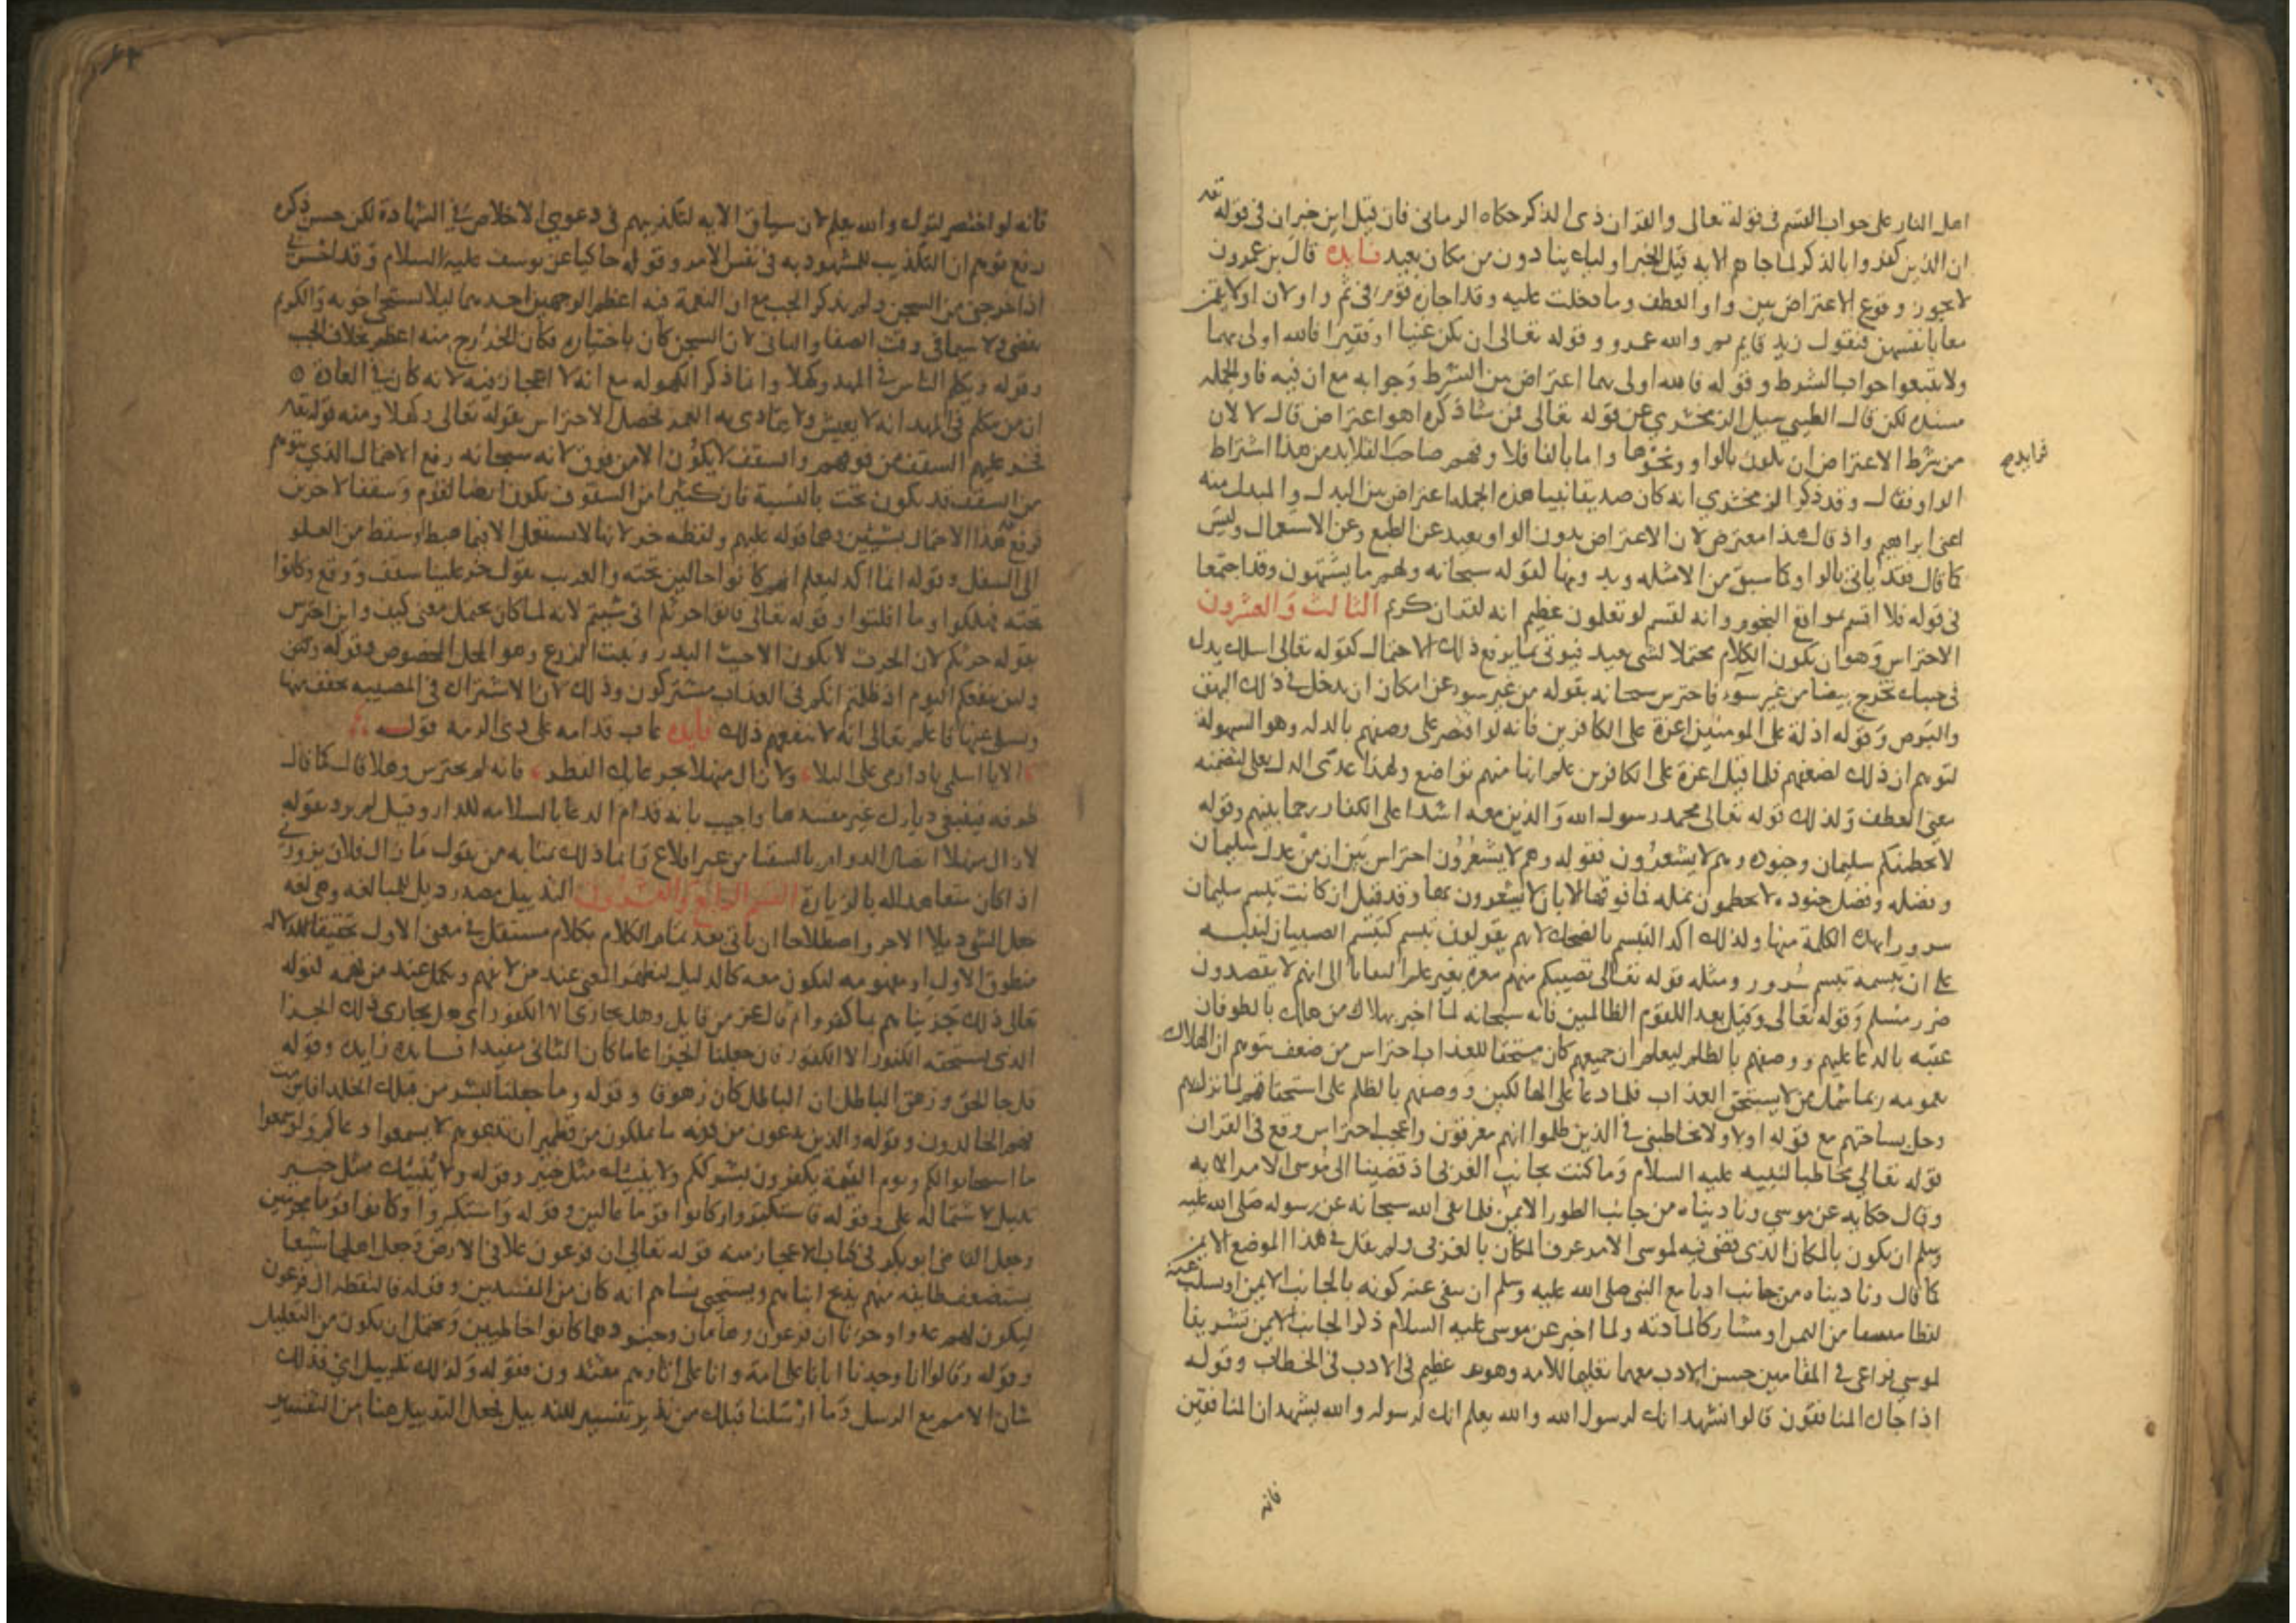 اهل النار على جواب القسم فى قوله تعالى والقران ذى الذكر حكاه الرمانى فان قيل اين خبر ان فى قوله تعـ
ان الذين كفروا بالذكر لما جاهم الايه قيل الخبر اوليك ينادون من مكان بعيد فايده قال بن عمرون
لا يجوز وقوع الاعتراض بين واو العطف وما دخلت عليه وقد اجازه قوم فى ثم واو
فتقول زيد قايم ثم والله عمرو وقوله تعالى ان يكن غنيا او فقيرا فالله اولى بهما
ولا تتبعوا جواب الشرط وقوله فالله اولى بهما اعتراض بين الشرط وجوابه مع ان فيه فا والجمله
مسنده لكن قال الطيبي سيل الزمخشري عن قوله تعالى فمن شا ذكره اهو اعتراض قال لا لان
من شرط الاعتراض ان يكون بالواو ونحوها واما بالفا فلا وفهم صاحب فرايد من هذا اشتراط
الواو فقال وقد ذكر الزمخشري انه كان صديقا نبيا هذه الجمله اعتراض بين البدل والمبدل منه
اعنى ابراهيم واذ قال هذا معترض لان الاعتراض بدون الواو بعيد عن الطبع وعن الاستعمال وليس
كما قال فقد ياتى بالواو كما سبق من الامثله وبدونها لقوله سبحانه ولهم ما يشتهون وقد اجتمعا
فى قوله فلا اقسم بمواقع النجوم وانه لقسم لو تعلمون عظيم انه لقران كريم الثالث والعشرون
الاحتراس وهو ان يكون الكلام محتملا لشى بعيد فيوتى بما يرفع ذلك الاحتمال كقوله تعالى اسلك يدك
فى جيبك تخرج بيضا من غير سوء فاحترس سبحانه بقوله من غير سوء عن امكان ان يدخل فى ذلك البهق
والبرص وقوله اذلة على المومنين اعزة على الكافرين فانه لو اقتصر على وصفهم بالذله وهو السهولة
لتوهم ان ذلك لضعفهم فلما قيل اعزة على الكافرين علم انها منهم تواضع ولهذا عدى الذل بعلى لتضمنه
معنى العطف وكذلك قوله تعالى محمد رسول الله والذين معه اشدا على الكفار رحما بينهم وقوله
لا يحطمنكم سليمان وجنوده وهم لا يشعرون فقوله وهم لا يشعرون احتراس بين ان من عدل سليمان
وفضله وفضل جنوده لا يحطمون نمله فما فوقها الا بان لا يشعرون بها وقد قيل ان كانت تبسم سليمان
سرورا بهذه الكلمة منها ولذلك اكد التبسم بالضحك لانهم يقولون تبسم كتبسم الغضبان لينبه
على ان تبسمه تبسم سرور ومثله قوله تعالى فتصيبكم منهم معرة بغير علم التفاتا الى انهم لا يقصدون
ضرر مسلم وقوله تعالى وقيل بعدا للقوم الظالمين فانه سبحانه لما اخبر بهلاك من هلك بالطوفان
عقبه بالدعا عليهم ووصفهم بالظلم ليعلم ان جميعهم كان مستحقا للعذاب احتراس من ضعف يتوهم ان الهلاك
بعمومه ربما شمل من لا يستحق العذاب فلما دعا على الهالكين ووصفهم بالظلم على استحقاقهم لما نزل بهم
وحل بساحتهم مع قوله اولا ولا تخاطبنى فى الذين ظلموا انهم مغرقون واعجب احتراس وقع فى القران
قوله تعالى مخاطبا لنبيه عليه السلام وما كنت بجانب الغربى اذ قضينا الى موسى الامر الايه
وقال حكايه عن موسى وناديناه من جانب الطور الايمن فلما نفى الله سبحانه عن رسوله صلى الله عليه
وسلم ان يكون بالمكان الذى قضى فيه لموسى الامر عرف المكان بالغربى ولم يقل فى هذا الموضع الايمن
كما قال وناديناه من جانب ادبا مع النبى صلى الله عليه وسلم ان ينفى عنه كونه بالجانب الايمن او يسلب عنه
لفظا مشتقا من اليمن او مشاركا لمادته ولما اخبر عن موسى عليه السلام ذكر الجانب الايمن تشريفا
لموسى فراعى فى المقامين حسن الادب معهما تعليما للامه وهو عظيم فى الادب فى الخطاب وقوله
اذا جاك المنافقون قالوا نشهد انك لرسول الله والله يعلم انك لرسوله والله يشهد ان المنافقين
فانه
فرايد
فانه لو اختصر لترك والله يعلم لان سياق الايه لتكذيبهم فى دعوى الاخلاص فى الشهادة لكن حسن ذكره
رفع توهم ان التكذيب للمشهود به فى نفس الامر وقوله حاكيا عن يوسف عليه السلام وقد احسن بى
اذ اخرجنى من السجن ولم يذكر الجب مع ان النعمة فيه اعظم لوجهين احدهما ليلا يستحى اخوته والكريم
يغضى ولا سيما فى وقت الصفا والثانى لان السجن كان باختياره فكان الخروج منه اعظم بخلاف الجب
وقوله ويكلم الناس فى المهد وكهلا وانما ذكر الكهوله مع انه لا اعجاز فيه لانه كان فى العادة
ان من تكلم فى المهد انه لا يعيش ولا يتمادى به العمر فحصل الاحتراس بقوله تعالى وكهلا ومنه قوله تعـ
فخر عليهم السقف من فوقهم والسقف لا يكون الا من فوق لانه سبحانه رفع الاحتمال الذي يتوهم
من السقف قد يكون تحت بالنسبة فان كثيرا من السقوف يكون ارضا لقوم وسقفا لاخرين
فرفع هذا الاحتمال بشيئين وهما قوله عليهم ولفظه خر لانها لا تستعمل الا فيما هبط او سقط من العلو
الى السفل وقوله انما اكد ليعلم انهم كانوا حالين تحته والعرب تقول خر علينا سقف ووقع وكانوا
تحته فهلكوا وما افلتوا وقوله تعالى فاتوا حرثكم انى شيتم لانه لما كان يحتمل معنى كيف واين احترس
بقوله حرثكم لان الحرث لا يكون الا حيث البذر ونبت الزرع وهو المحل المخصوص وقوله
ولن ينفعكم اليوم اذ ظلمتم انكم فى العذاب مشتركون وذلك لان الاشتراك فى المصيبه يخفف منها
ويسلى عنها فاعلم تعالى انه لا ينفعهم ذلك فايده عاب قدامه على ذى الرمه قوله
الا يا اسلمى يا دارمى على البلا ولا زال منهلا بجرعائك القطر فانه لم يحترس وهلا قال كما قال
طرفه فسقى ديارك غير مفسدها واجيب بانه قدم الدعا بالسلامه للدار وقيل لم يرد بقوله
لا زال منهلا اتصال الدوام بالسقيا من غير اقلاع وانما ذلك بمثابه من يقول ما زال فلان يزورنى
اذا كان متعاهدا له بالزيارة القسم الرابع والعشرون التذييل مصدر ذيل للمبالغه وهى لغه
جعل الشى ذيلا للاخر واصطلاحا ان ياتى بعد تمام الكلام بكلام مستقل فى معنى الاول تحقيقا لدلاله
منطوق الاول او مفهومه ليكون معه كالدليل ليظهر المعنى عند من لا يفهم ويكمل عند من فهمه لقوله
تعالى ذلك جزيناهم بما كفروا ثم قال عز من قايل وهل يجازى الا الكفور اى هل يجازى ذلك الجزا
الذى يستحقه الكفور الا الكفور فان جعلنا الجزا عاما كان الثانى مفيدا فايده زايده وقوله
قل جا الحق وزهق الباطل ان الباطل كان زهوقا وقوله وما جعلنا لبشر من قبلك الخلد افاين مت
فهم الخالدون وقوله والذين يدعون من دونه ما يملكون من قطمير ان تدعوهم لا يسمعوا دعاكم ولو سمعوا
ما استجابوا لكم ويوم القيمة يكفرون بشرككم ولا ينبيك مثل خبير فقوله ولا ينبيك مثل خبير
تذييل لاشتماله على وقوله فاستكبروا وكانوا قوما عالين وقوله واستكبروا وكانوا قوما مجرمين
وجعل القاضى ابو بكر فى كتاب الاعجاز منه قوله تعالى ان فرعون علا فى الارض وجعل اهلها شيعا
يستضعف طايفه منهم يذبح ابناهم ويستحيى نساهم انه كان من المفسدين وقوله فالتقطه ال فرعون
ليكون لهم عدوا وحزنا ان فرعون وهامان وجنودهما كانوا خاطيين ويحتمل ان يكون من التعليل
وقوله وقالوا انا وجدنا ابانا على امة وانا على اثارهم مقتدون فقوله وكذلك تذييل اى فذلك
شان الامم مع الرسل وما ارسلنا قبلك من نذير تفسير للتذييل فجعل التذييل هنا من التفسير